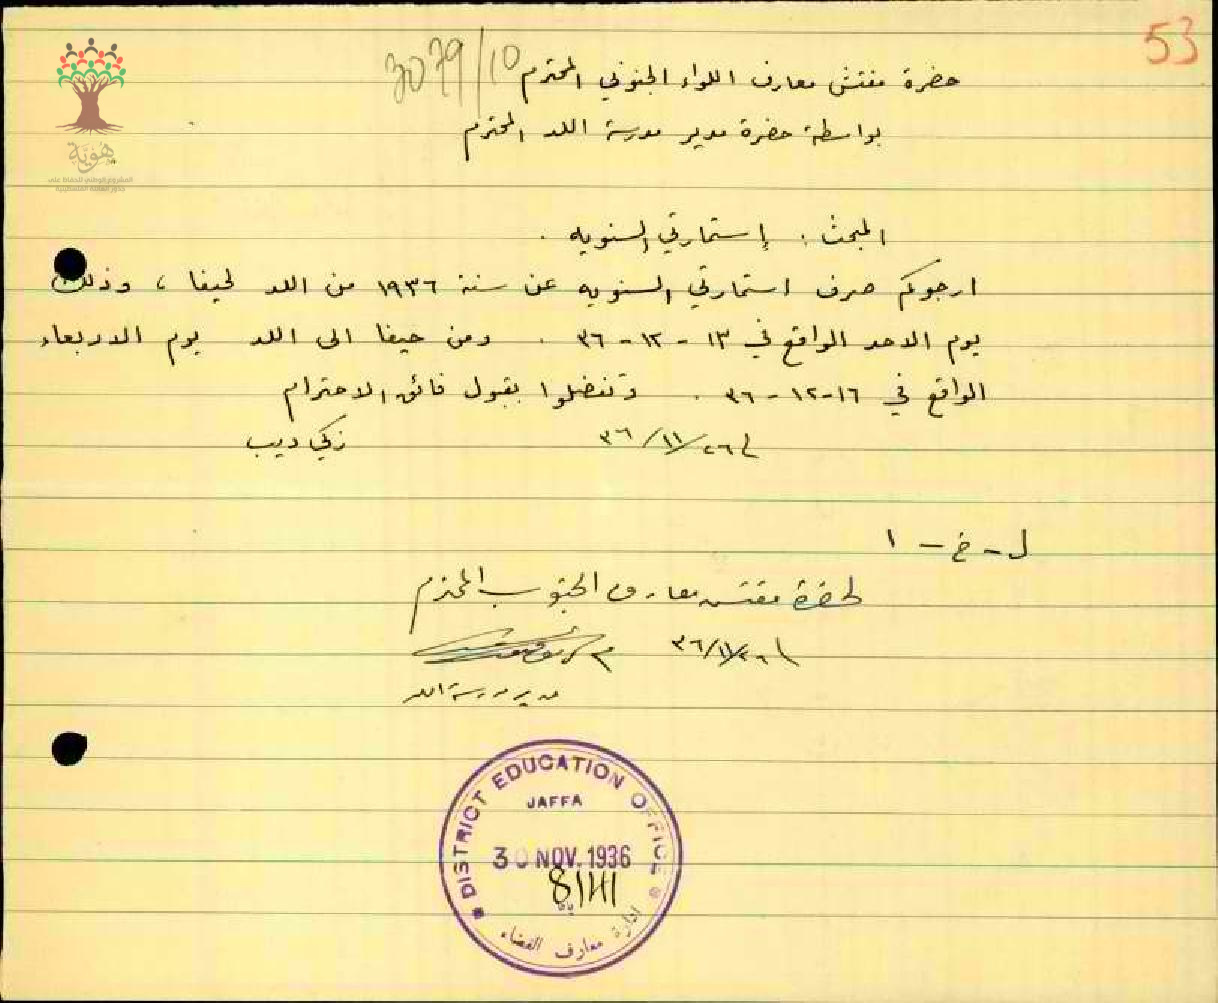 53
3079/10
حضرة مفتش معارف اللواء الجنوبي المحترم
بواسطة حضرة مدير مدرسة اللد المحترم
هوية
المشروع الوطني للحفاظ على
جذور العائلة الفلسطينية
المبحث : إستمارتي السنويه .
ارجوكم صرف استمارتي السنويه عن سنة ١٩٣٦ من اللد لحيفا ، وذلك
يوم الاحد الواقع في ١٣ - ١٢ - ٣٦ . ومن حيفا الى اللد يوم الاربعاء
الواقع في ١٦-١٢-٣٦ . وتفضلوا بقبول فائق الاحترام
٢٦/١١/٣٦
زكي ديب
ل - خ - ١
لحضرة مفتش معارف الجنوب المحترم
٢٦/١١/٣٦
مدير مدرسة اللد
DISTRICT EDUCATION OFFICE
JAFFA
30 NOV. 1936
8/141
يافا
ادارة معارف القضاء